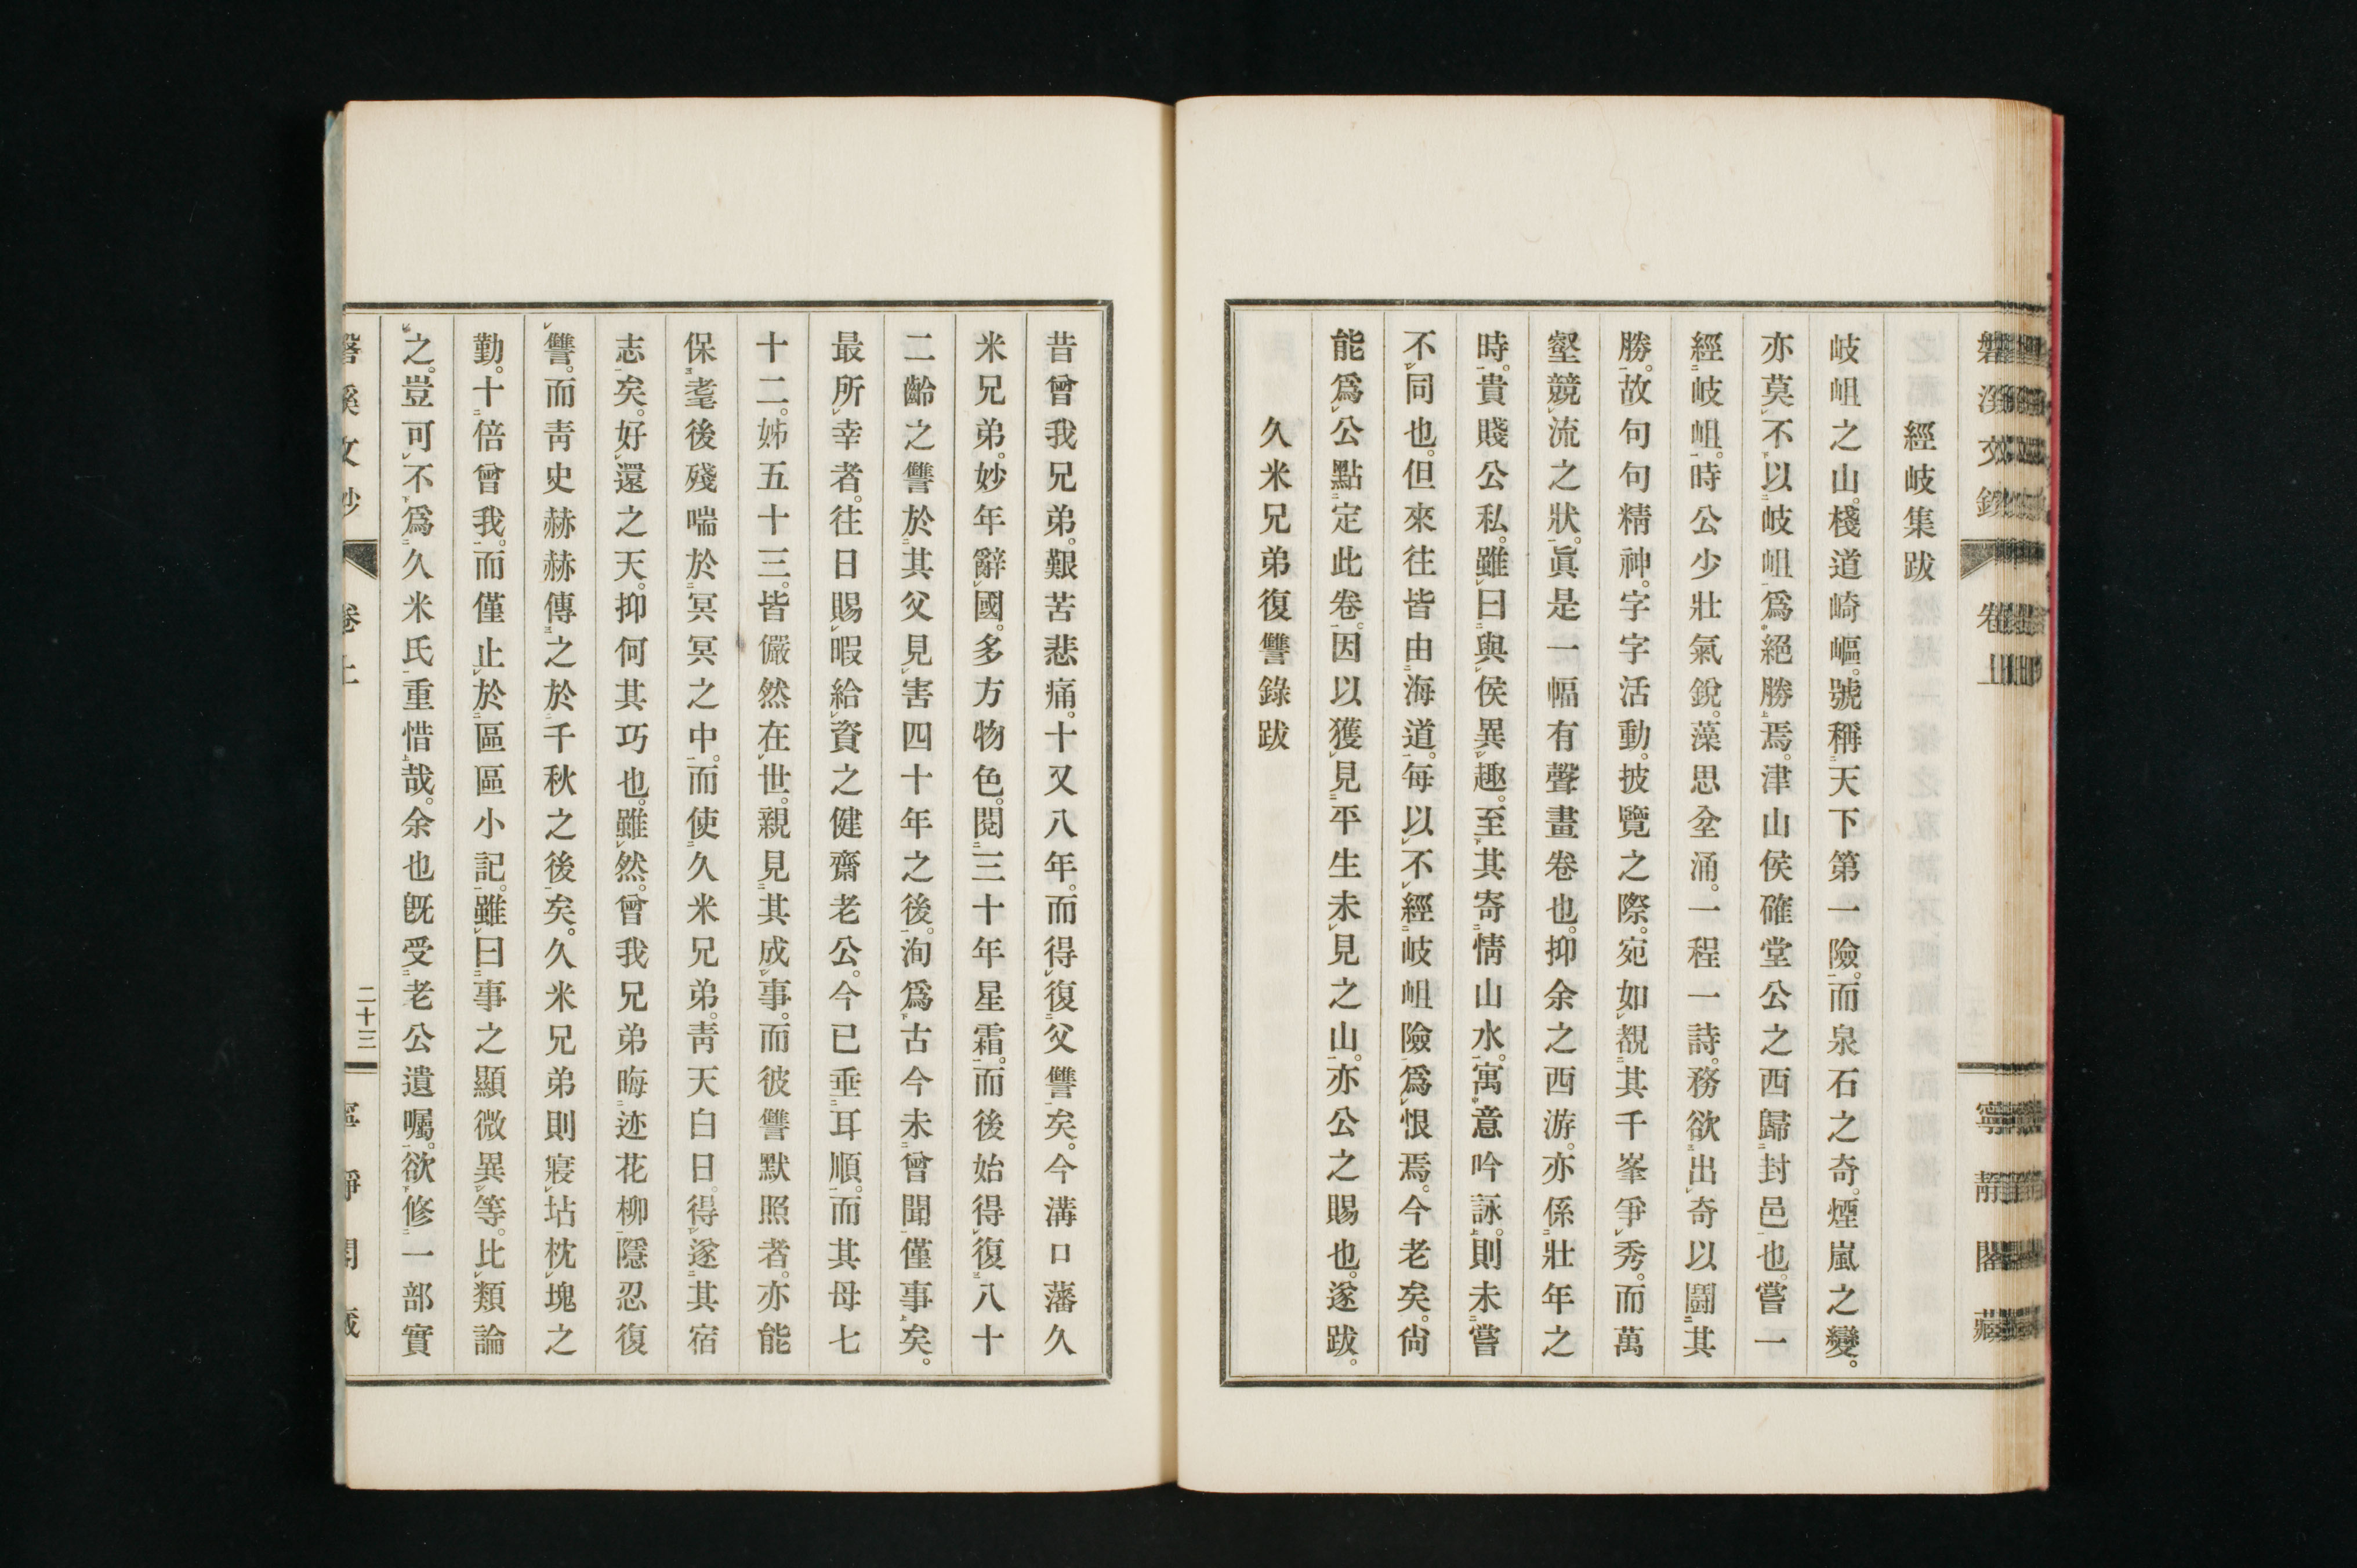 磐溪文鈔　卷上　寧靜閣藏
經岐集跋
岐岨之山。棧道崎嶇。號稱天下第一險。而泉石之奇。煙嵐之變。
亦莫不以岐岨爲絕勝焉。津山侯確堂公之西歸封邑也。嘗一
經岐岨。時公少壯氣銳。藻思坌涌。一程一詩。務欲出奇以鬪其
勝。故句句精神。字字活動。披覽之際。宛如覩其千峯爭秀。而萬
壑競流之狀。眞是一幅有聲畫卷也。抑余之西游。亦係壯年之
時。貴賤公私。雖曰與侯異趣。至其寄情山水。寓意吟詠。則未嘗
不同也。但來往皆由海道。每以不經岐岨險爲恨焉。今老矣。尙
能爲公點定此卷。因以獲見平生未見之山。亦公之賜也。遂跋。
久米兄弟復讐錄跋
昔曾我兄弟。艱苦悲痛。十又八年。而得復父讐矣。今溝口藩久
米兄弟。妙年辭國。多方物色。閱三十年星霜。而後始得復八十
二齡之讐於其父見害四十年之後。洵爲古今未曾聞僅事矣。
最所幸者。往日賜暇給資之健齋老公。今已垂耳順。而其母七
十二。姊五十三。皆儼然在世。親見其成事。而彼讐默照者。亦能
保耄後殘喘於冥冥之中。而使久米兄弟。靑天白日。得遂其宿
志矣。好還之天。抑何其巧也。雖然。曾我兄弟晦迹花柳隱忍復
讐。而靑史赫赫傳之於千秋之後矣。久米兄弟則寢坫枕塊之
勤。十倍曾我。而僅止於區區小記。雖曰事之顯微異等。比類論
之。豈可不爲久米氏重惜哉。余也旣受老公遺囑。欲修一部實
磐溪文鈔　卷上　二十三　寧靜閣藏